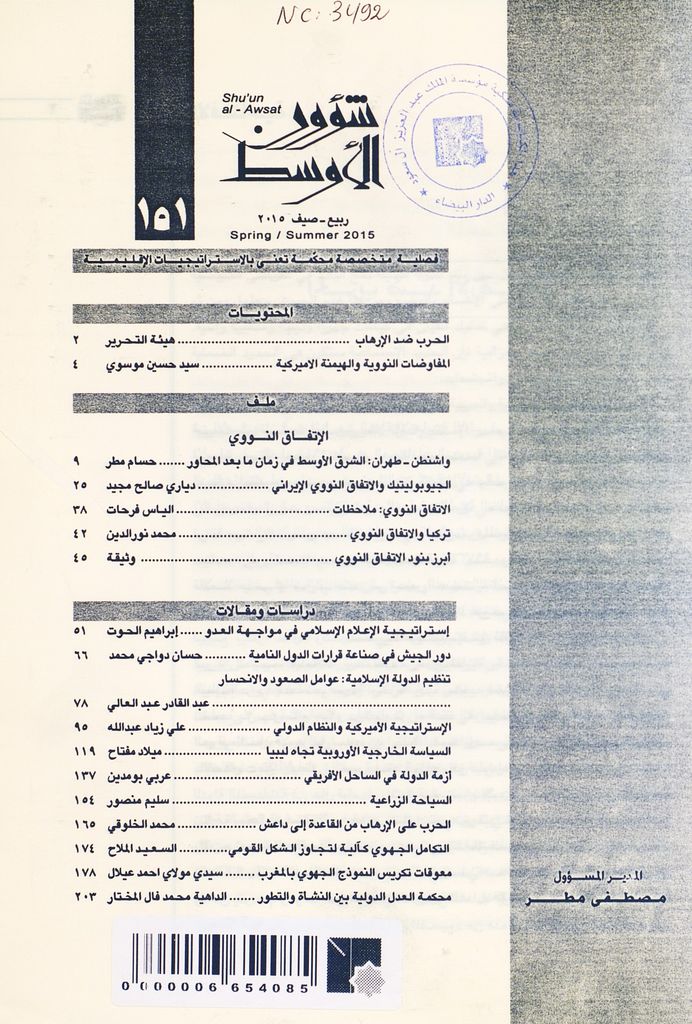 NC: 3492
Shu'un
al - Awsat
شؤون
الأوسط
١٥١
ربيع - صيف ٢٠١٥
Spring / Summer 2015
الدار البيضاء
فصلية متخصصة محكمة تعنى بالاستراتيجيات الإقليمية
المحتويات
الحرب ضد الإرهاب ........ هيئة التحرير ٢
المفاوضات النووية والهيمنة الاميركية ........ سيد حسين موسوي ٤
ملف
الإتفاق النووي
واشنطن - طهران: الشرق الأوسط في زمان ما بعد المحاور ....... حسام مطر ٩
الجيوبوليتيك والاتفاق النووي الإيراني ........ دياري صالح مجيد ٢٥
الاتفاق النووي: ملاحظات ........ الياس فرحات ٣٨
تركيا والاتفاق النووي ........ محمد نورالدين ٤٢
أبرز بنود الاتفاق النووي ........ وثيقة ٤٥
دراسات ومقالات
إستراتيجية الإعلام الإسلامي في مواجهة العدو ...... إبراهيم الحوت ٥١
دور الجيش في صناعة قرارات الدول النامية ........ حسان دواجي محمد ٦٦
تنظيم الدولة الإسلامية: عوامل الصعود والانحسار
........ عبد القادر عبد العالي ٧٨
الإستراتيجية الأميركية والنظام الدولي ........ علي زياد عبدالله ٩٥
السياسة الخارجية الأوروبية تجاه ليبيا ........ ميلاد مفتاح ١١٩
أزمة الدولة في الساحل الأفريقي ........ عربي بومدين ١٣٧
السياحة الزراعية ........ سليم منصور ١٥٤
الحرب على الإرهاب من القاعدة إلى داعش ........ محمد الخلوقي ١٦٥
التكامل الجهوي كآلية لتجاوز الشكل القومي ........ السعيد الملاح ١٧٤
معوقات تكريس النموذج الجهوي بالمغرب ........ سيدي مولاي احمد عيلال ١٧٨
محكمة العدل الدولية بين النشاة والتطور ....... الداهية محمد فال المختار ٢٠٣
المدير المسؤول
مصطفى مطر
0 000006 654085